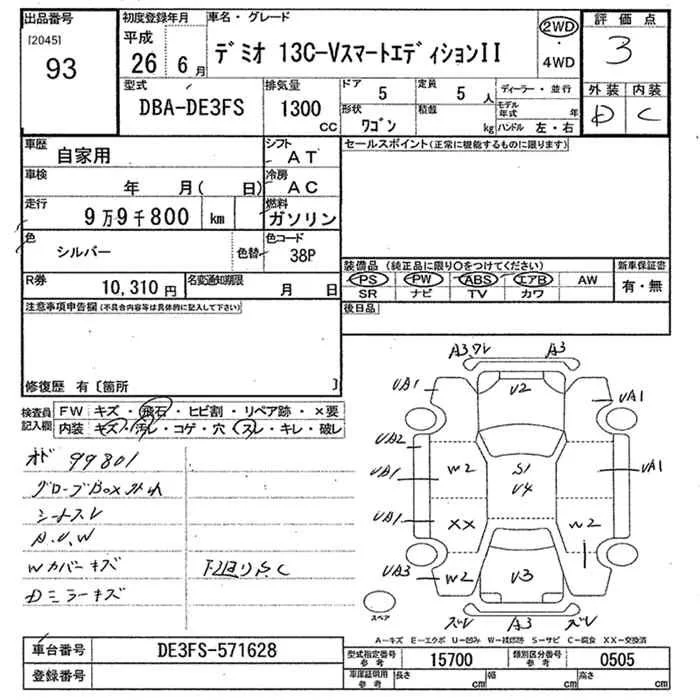 出品番号 初度登録年月 車名・グレード 評価点
[2045] 93
平成 26 6月
デミオ 13C-Vスマートエディション II
2WD ・ 4WD
3
型式 DBA-DE3FS
排気量 1300 CC
ドア 5
定員 5 人
ディーラー・並行
形状 ワゴン
積載 kg
モデル年式 年
ハンドル 左・右
外装 内装
D C
車歴 自家用
シフト AT
セールスポイント(正常に機能するものに限ります)
車検 年 月( 日)
冷房 AC
走行 9万9千800 km
燃料 ガソリン
色 シルバー 色替
色コード 38P
装備品 (純正品に限り○をつけてください) 新車保証書
PS PW ABS エアB AW
SR ナビ TV カワ
有・無
R券 10,310 円
名変通知期限 月 日
注意事項申告欄 (不具合内容等は具体的に記入して下さい)
後日品
修復歴 有 〔箇所 〕
検査員記入欄
FW キズ・飛石・ヒビ割・リペア跡・×要
内装 キズ・汚レ・コゲ・穴・スレ・キレ・破レ
オド 99801
グローブBox外れ
シートスレ
A.U.W
Wカバーキズ 下廻りS.C
Dミラーキズ
A3,ワレ A3
UA1 U2 UA1
UA2
UA1 W2 S1 UA1
U4
UA1 XX W2
UA3 W2 U3
ズレ A3 ズレ
スペア
A-キズ E-エクボ U-凹み W-補修跡 S-サビ C-腐食 XX-交換済
車台番号 DE3FS-571628
型式指定番号 参考 15700
類別区分番号 参考 0505
登録番号
車庫証明用 参考 長さ cm 幅 cm 高さ cm